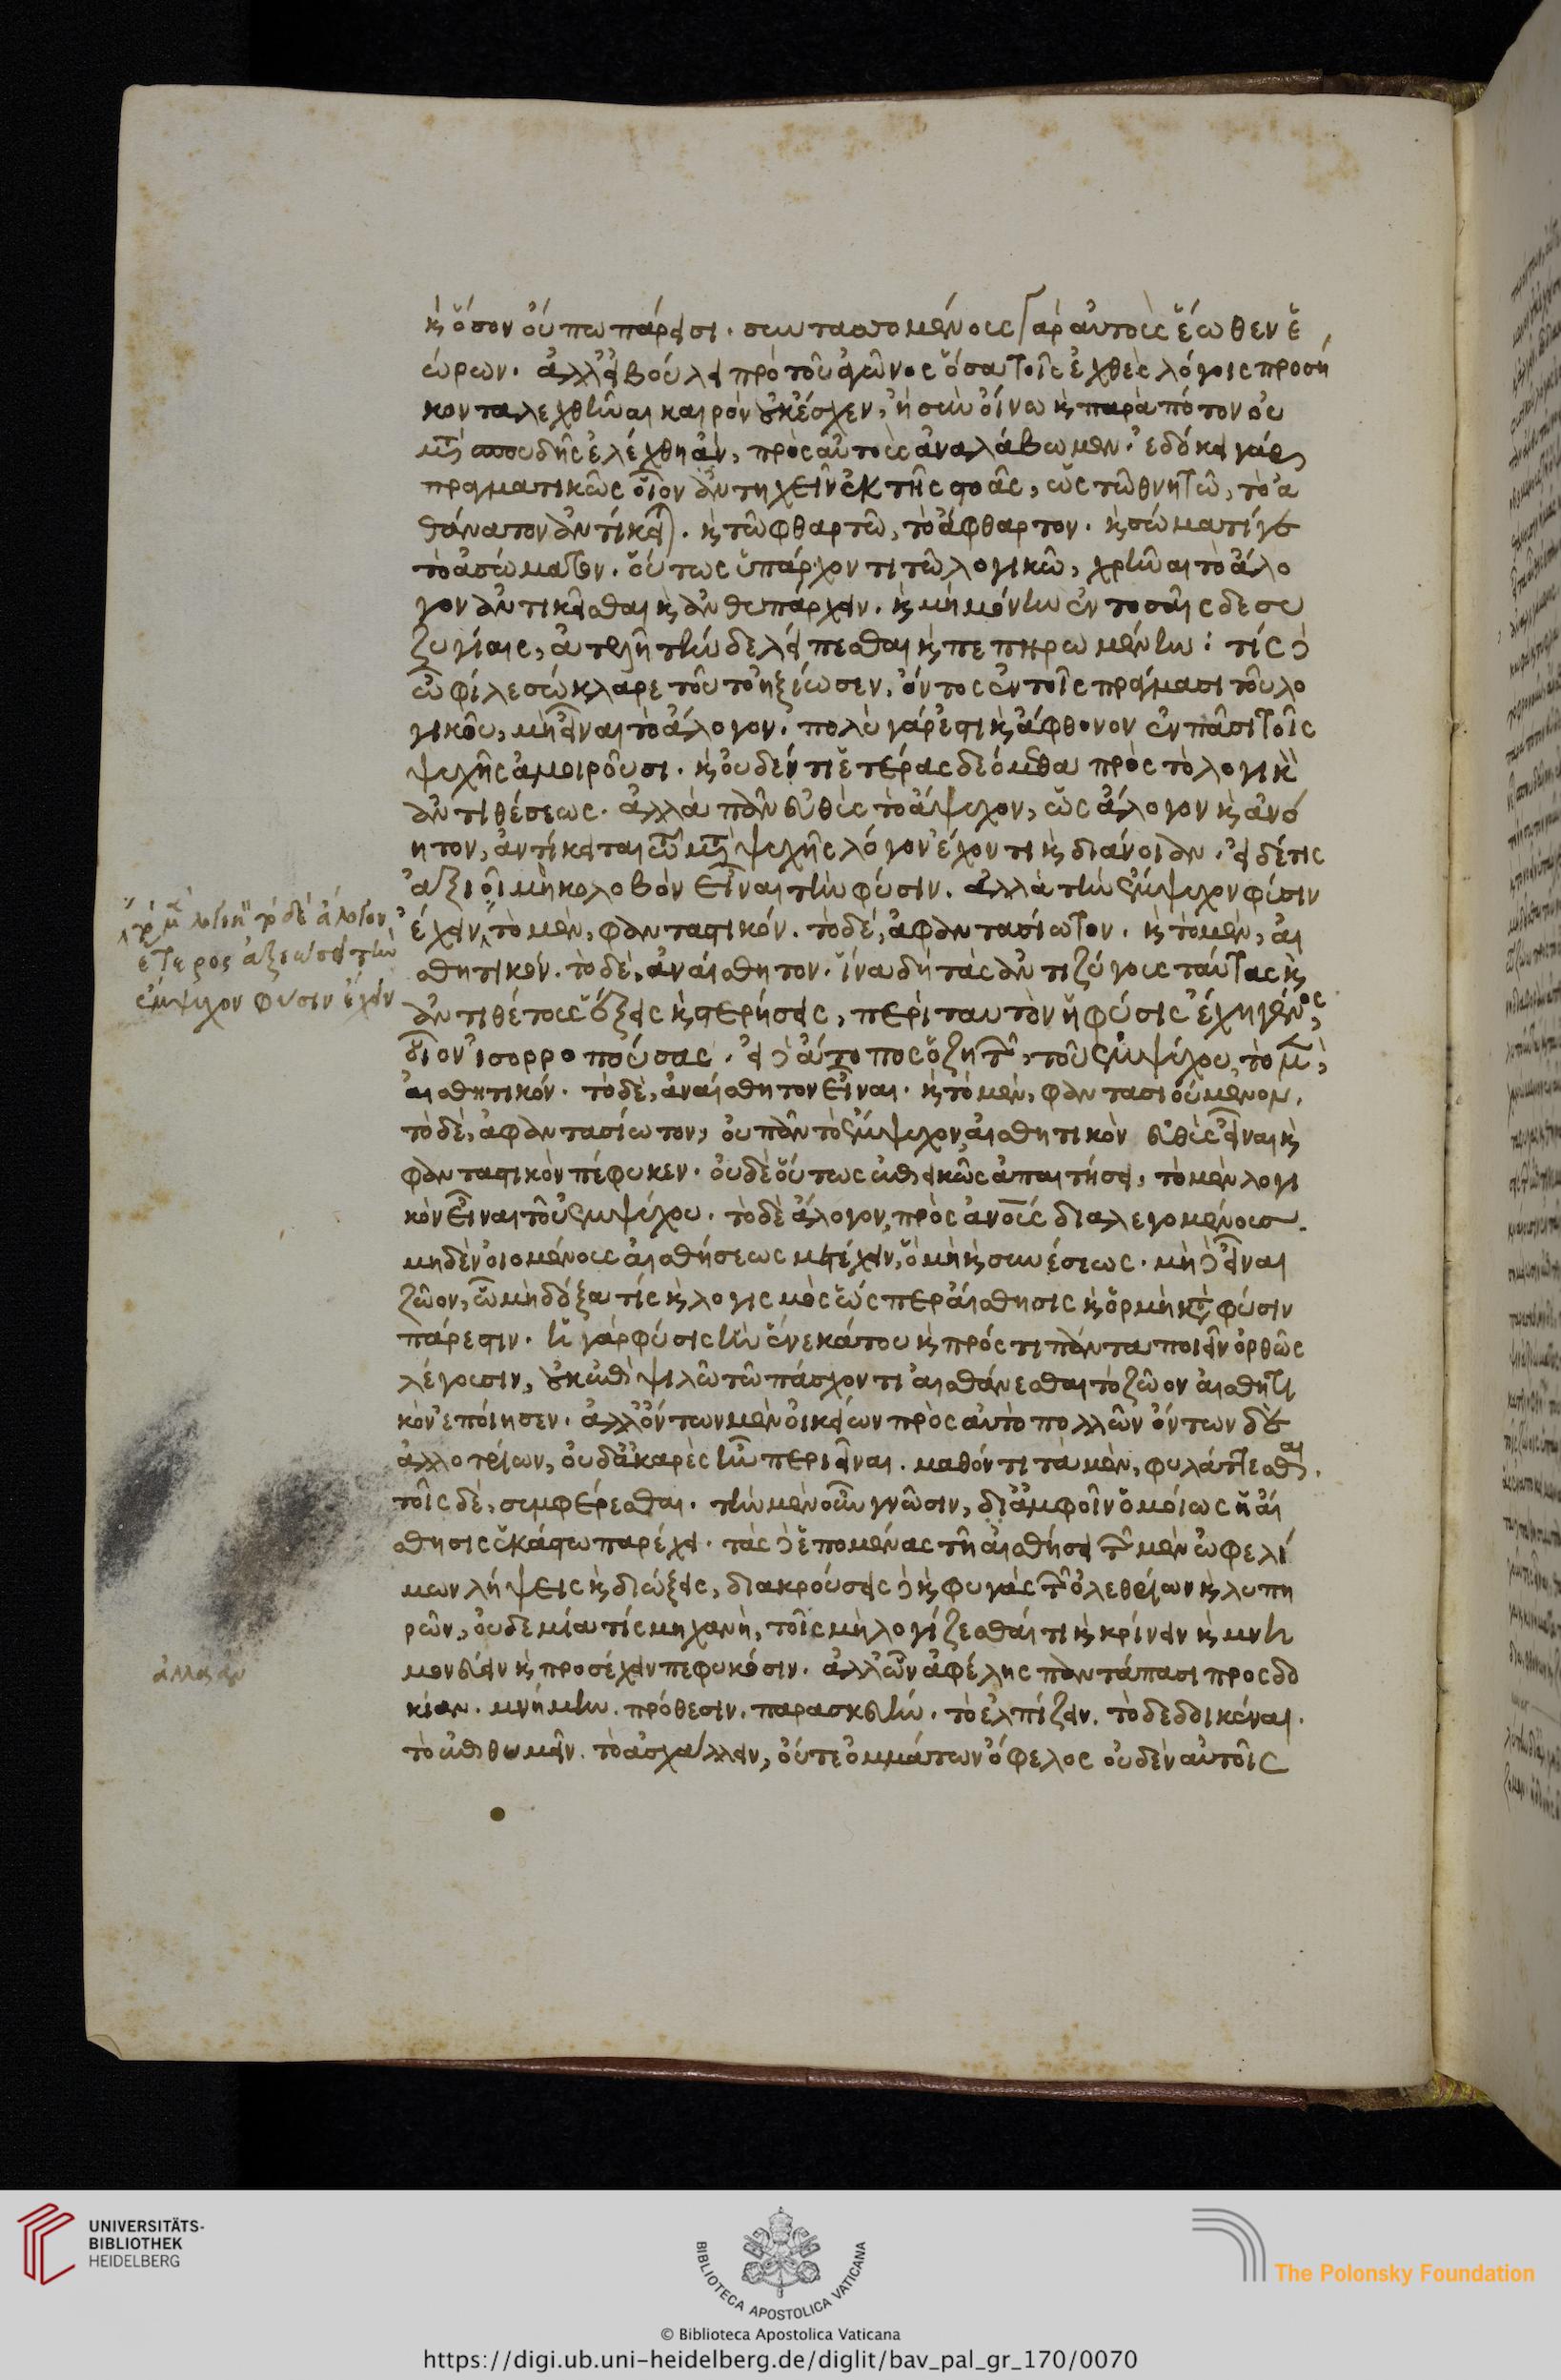 κ ὅσον οὔπω πάρεισι. συνταττομένους γὰρ αὐτοὺς ἕωθεν ἑ
ώρων. ἀλλ' εἰ βούλει πρὸ τοῦ ἀγῶνος ὅσα τοῖς ἐχθὲς λόγοις προσή
κοντα λεχθῆναι καιρὸν οὐκ ἔσχεν, ἢ σὺν οἴνω κ παρὰ πότον οὐ
μετὰ σπουδῆς ἐλέχθη ἂν, πρὸς αὑτοὺς ἀναλάβωμεν. ἐδόκει γάρ
πραγματικῶς οἷον ἀντηχεῖν ἐκ τῆς στοᾶς, ὡς τῶ θνητῶ, τὸ ἀ
θάνατον ἀντίκειται. κ τῶ φθαρτῶ, τὸ ἄφθαρτον. κ σώματί γε
τὸ ἀσώματον. οὕτως ὑπάρχοντι τῶ λογικῶ, χρῆναι τὸ ἄλο
γον ἀντικεῖσθαι κ ἀνθυπάρχειν. κ μὴ μόνην ἐν τοσαῖσδε συ
ζυγίαις, ἀτελῆ τήνδε λείπεσθαι κ πεπηρωμένην: τίς δὲ
ὦ φίλε σώκλαρε τοῦτο ἠξίωσεν, ὄντος ἐν τοῖς πράγμασι τοῦ λο
γικοῦ, μὴ εἶναι τὸ ἄλογον. πολὺ γάρ ἐστι κ ἄφθονον ἐν πᾶσι τοῖς
ψυχῆς ἀμοιροῦσι. κ οὐδέν τι ἑτέρας δεόμεθα πρὸς τὸ λογικὸν
ἀντιθέσεως. ἀλλὰ πᾶν εὐθὺς τὸ ἄψυχον, ὡς ἄλογον κ ἀνό
ητον, ἀντίκειται τῶ μετὰ ψυχῆς λόγον ἔχοντι κ διάνοιαν. εἰ δέ τις
ἀξιοῖ μὴ κολοβὸν εἶναι τὴν φύσιν. ἀλλὰ τὴν ἔμψυχον φύσιν
ἔχειν, τὸ μὲν, φανταστικόν. τὸ δέ, ἀφαντασίωτον. κ τὸ μὲν, αἰ
σθητικόν. τὸ δὲ, ἀναίσθητον. ἵνα δὴ τὰς ἀντιζύγους ταύτας κ
ἀντιθέτους ἕξεις κ στερήσεις, περὶ ταυτὸν ἡ φύσις ἔχη γένος,
οἷον ἰσορροπούσας. εἰ δὲ ἄτοπος ὁ ζητῶν, τοῦ ἐμψύχου, τὸ μὲν,
αἰσθητικόν. τὸ δὲ, ἀναίσθητον εἶναι. κ τὸ μὲν, φαντασιούμενον.
τὸ δὲ, ἀφαντασίωτον, οὐ πᾶν τὸ ἔμψυχον, αἰσθητικὸν εὐθὺς εἶναι κ
φανταστικὸν πέφυκεν. οὐδὲ οὕτως ἐπιεικῶς ἀπαιτήσει, τὸ μὲν λογι
κὸν εἶναι τοῦ ἐμψύχου. τὸ δὲ ἄλογον, πρὸς ἀνους διαλεγομένους
μηδὲν οἰομένους αἰσθήσεως μετέχειν, ὃ μὴ κ συνέσεως. μὴ δὲ εἶναι
ζῶον, ὧ μὴ δόξα τίς κ λογισμὸς ὥσπερ αἴσθησις κ ὁρμὴ κατὰ φύσιν
πάρεστιν. ἡ γὰρ φύσις ἣν ἕνεκά του κ πρός τι πάντα ποιεῖν ὀρθῶς
λέγουσιν, οὐκ ἐπὶ ψιλῶ τῶ πάσχον τι αἰσθάνεσθαι τὸ ζῶον αἰσθητι
κὸν ἐποίησεν. ἀλλ' ὄντων μὲν οἰκείων πρὸς αὐτὸ πολλῶν ὄντων δὲ
ἀλλοτρίων, οὐδ' ἀκαρὲς ἦν περιεῖναι. μαθόντι τὰ μὲν, φυλάττεσθαι.
τοῖς δὲ, συμφέρεσθαι. τὴν μὲν οὖν γνῶσιν, δι' ἀμφοῖν ὁμοίως ἡ αἴ
σθησις ἑκάστω παρέχει. τὰς δὲ ἑπομένας τῆ αἰσθήσει τῶν μὲν ὠφελί
μων λήψεις κ διώξεις, διακρούσεις δὲ κ φυγὰς τῶν ὀλεθρίων κ λυπη
ρῶν, οὐδεμία τίς μηχανὴ, τοῖς μὴ λογίζεσθαί τι κ κρίνειν κ μνη
μονεύειν κ προσέχειν πεφυκόσιν. ἀλλ' ὧν ἀφέλης παντάπασι προσδο
κίαν. μνήμην. πρόθεσιν. παρασκευήν. τὸ ἐλπίζειν. τὸ δεδοικέναι.
τὸ ἐπιθυμεῖν. τὸ ἀσχάλλειν, οὔτε ὀμμάτων ὄφελος οὐδὲν αὐτοῖς
τὸ μὲν λογικὸν τὸ δὲ ἄλογον,
ἕτερος ἀξιώσει τὴν
ἔμψυχον φύσιν ἔχειν
UNIVERSITÄTS-
BIBLIOTHEK
HEIDELBERG
BIBLIOTECA APOSTOLICA VATICANA
The Polonsky Foundation
© Biblioteca Apostolica Vaticana
https://digi.ub.uni-heidelberg.de/diglit/bav_pal_gr_170/0070